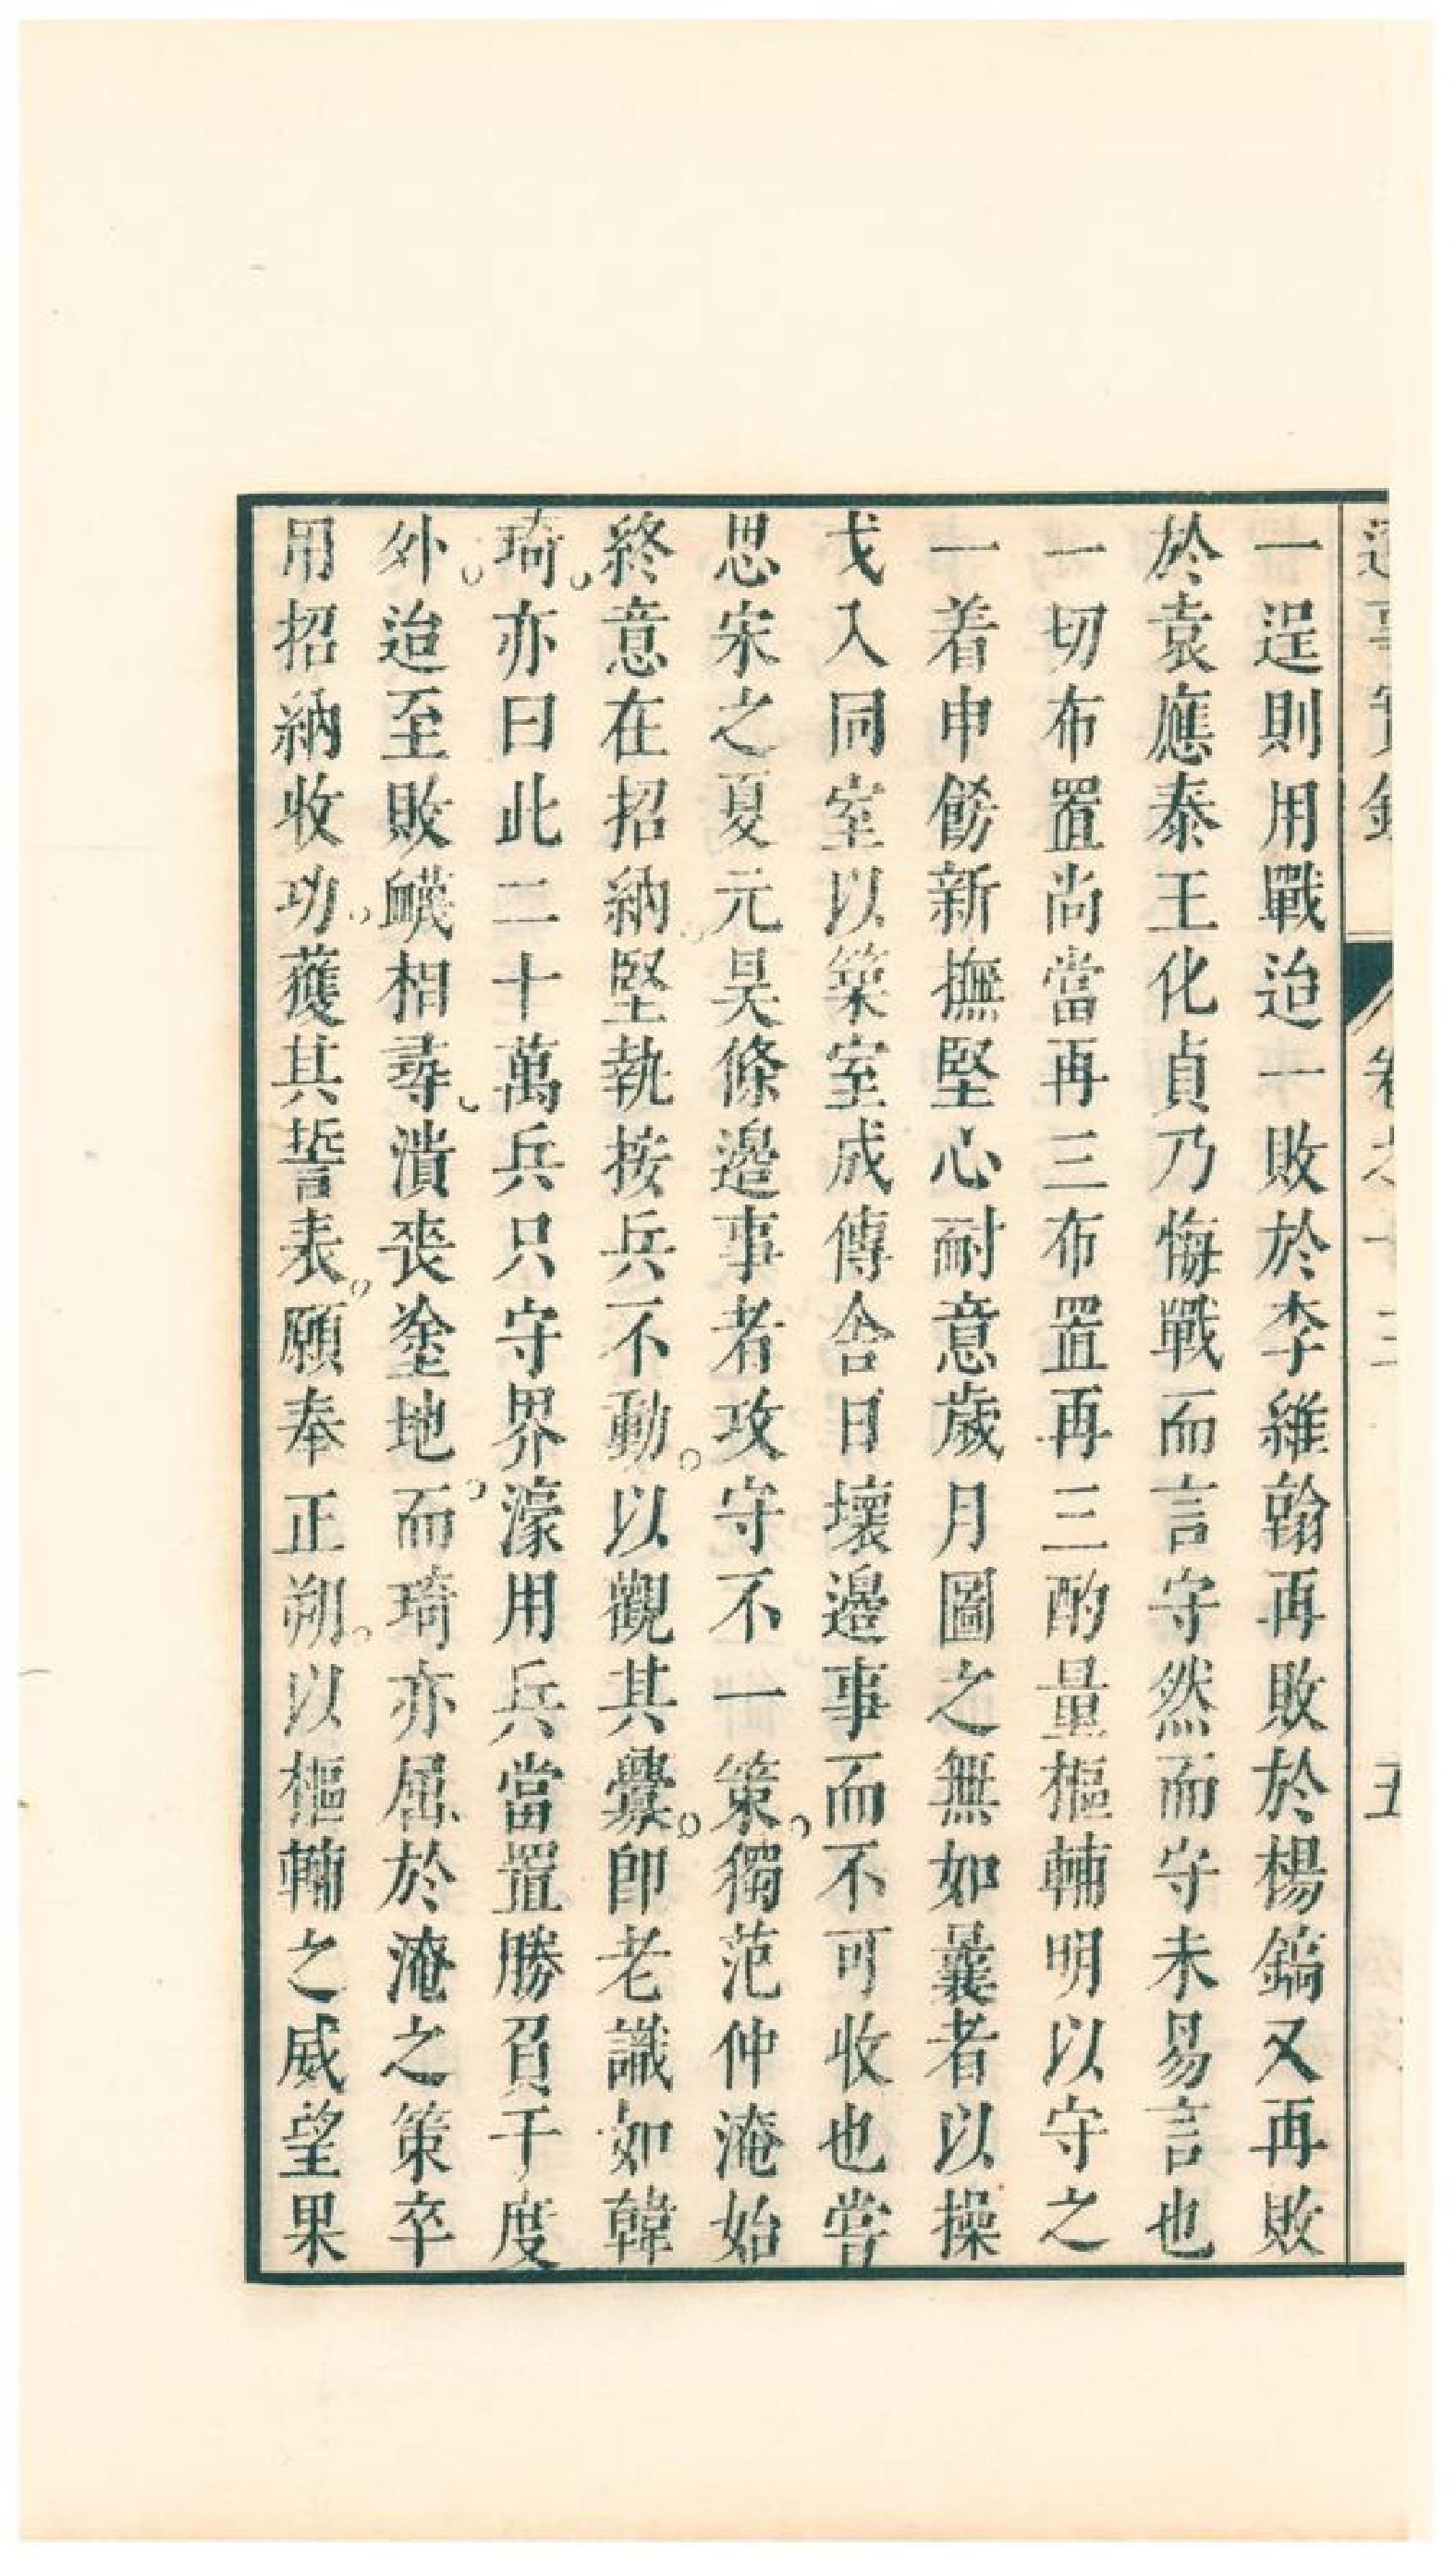 一逞則用戰迨一敗於李維翰再敗於楊鎬又再敗
於袁應泰王化貞乃悔戰而言守然而守未易言也
一切布置尚當再三布置再三酌量樞輔明以守之
一着申飭新撫堅心耐意歲月圖之無如曩者以操
戈入同室以築室成傳舍日壞邊事而不可收也嘗
思宋之夏元昊條邊事者攻守不一策獨范仲淹始
終意在招納堅執按兵不動以觀其釁即老識如韓
琦亦曰此二十萬兵只守界濠用兵當置勝負于度
外迨至敗衊相尋潰喪塗地而琦亦屈於淹之策卒
用招納收功獲其誓表願奉正朔以樞輔之威望果